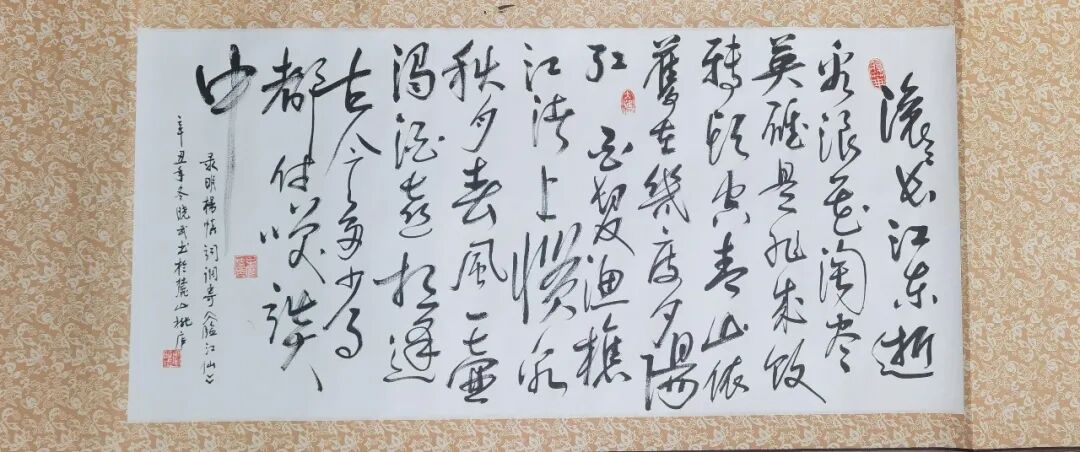 滚滚长江东逝
水浪花淘尽
英雄是非成败
转头空青山依
舊在幾度夕陽
红 白髮渔樵
江渚上惯看
秋月春風一壶
濁酒喜相逢
古今多少事
都付笑談
中
录明楊慎词调寄《临江仙》
辛丑年冬晓武书於麓山